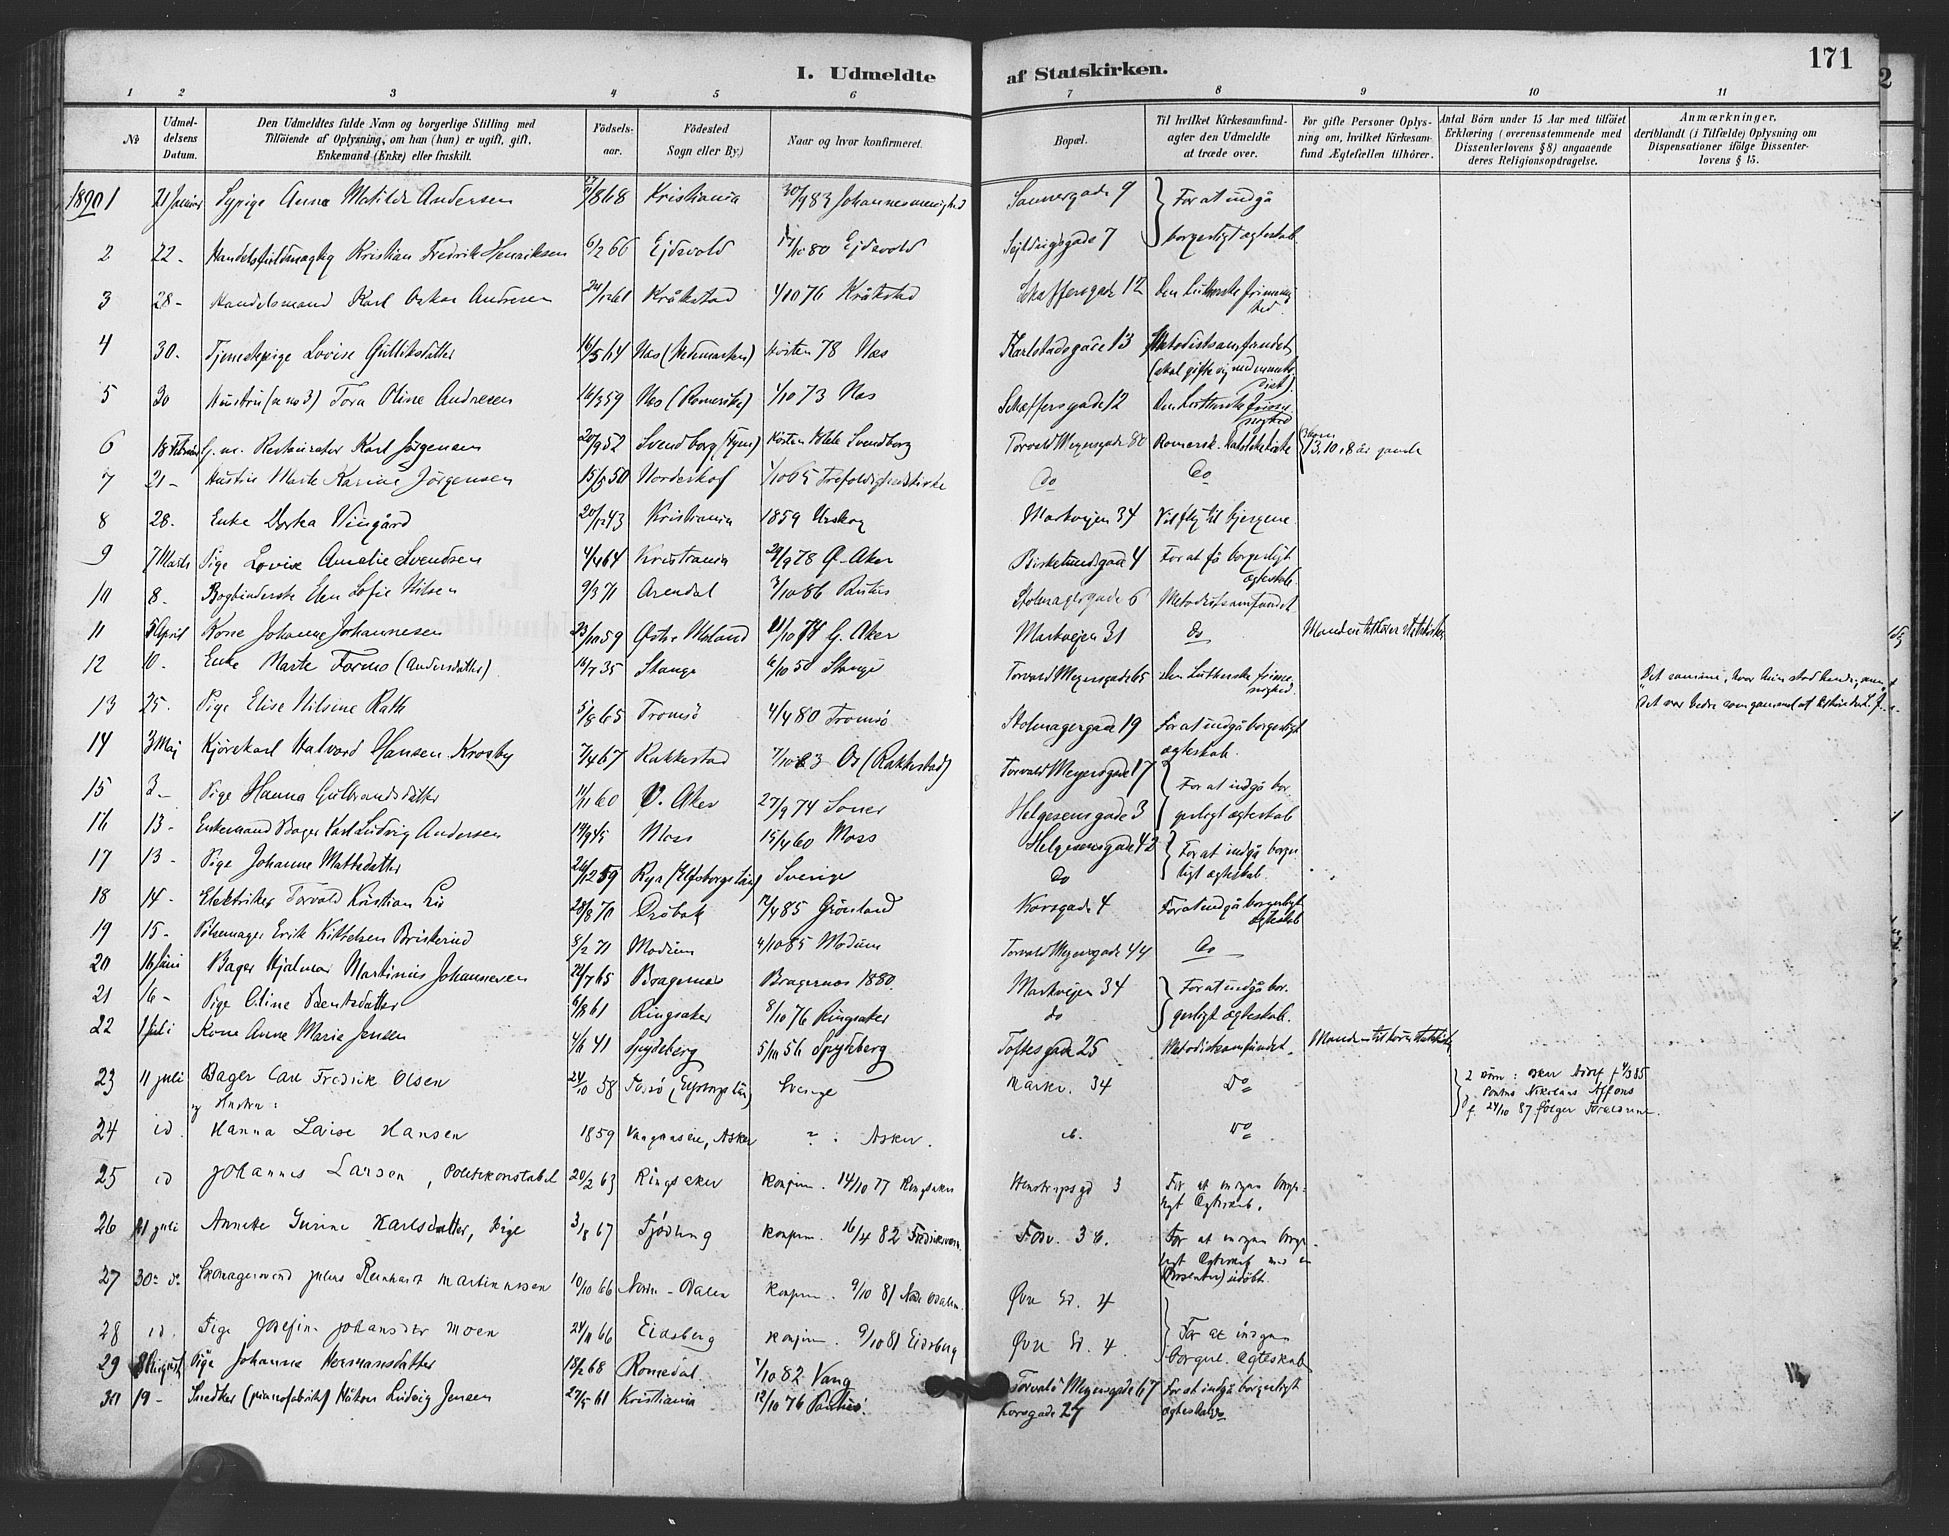 171
I. Udmeldte af Statskirken.
1 2 3 4 5 6 7 8 9 10 11
No
Udmeldelsens Datum.
Den Udmeldtes fulde Navn og borgerlige Stilling med
Tilføiende af Oplysning, om han (hun) er ugift, gift,
Enkemand (Enke) eller fraskilt.
Fødselsaar.
Fødested
Sogn eller By.)
Naar og hvor konfirmeret.
Bopæl.
Til hvilket Kirkesamfund
agter den Udmeldte
at træde over.
For gifte Personer Oplysning
om, hvilket Kirkesamfund
Ægtefællen tilhører.
Antal Børn under 15 Aar med tilføiet
Erklæring (overensstemmende med
Dissenterlovens § 8) angaaende
deres Religionsopdragelse.
Anmærkninger,
deriblandt (i Tilfælde) Oplysning om
Dispensationer ifølge Dissenterlovens § 15.
1890 1 21 Januar Sypige Anna Matilde Andersen 868 Kristiania 30/9 83 Johannesmenighed Sannergade 9 For at indgå
2 22 - Handelsfuldmægtig Kristian Fredrik Henriksen 6/2 66 Ejdsvold 80 Ejdsvold 7 borgerligt ægteskab
3 28 - Handelsmand Karl Oskar Andresen 61 Kråkstad 4/10 76 Kråkstad Schæffersgade 12 Den lutherske frimenighed.
4 30. Tjenestepige Lovise Gullikdatter 16/5 64 Næs (Hedemarken) Høsten 78 Næs Karlstadsgade 13 Metodistsamfundet
(skal gifte sig med metodist).
5 30 Hustru (no 3) Tora Oline Andresen 59 Næs (Romerike) 4/10 73 Næs Schæffersgade 12 Den lutherske frimenighed
6 18 Februar G. m. Restauratør Karl Jørgensen 20/9 52 Svendborg (Fyen) Høsten Svendborg Torvald Meyersgade 80 Romersk-katolske kirke 13, 10, 8 år gamle
7 21 - Hustru Marte Karine Jørgensen 15/5 50 Norderhof 1/10 65 Trefoldighedskirke do do
8 28. Enke Dortea Vingård 20/12 43 Kristiania 1859 Urskog Markvejen 34
9 7 Marts Pige Lovise Amalie Svendsen 4/4 64 Kristiania 29/9 78 Ø. Aker Birkelundsgade 4 For at få borgerligt
ægteskab
10 8 - Bogbinderske Elen Sofie Nilsen 9/3 71 Arendal 3/10 86 Paulus Stolmagergade 6 Metodistsamfundet
11 5 April Kone Johanne Johannesen 23/10 59 11/10 74 G. Aker Markvejen 31 do Manden tilhører Statskirken
12 10. Enke Marte Formo (Andersdatter) 16/7 35 Stange 6/10 50 Stange Torvald Meyersgade 65 Den lutherske frimenighed.
13 25. Pige Elise Nilsine Rath 5/8 65 Tromsö 4/4 80 Tromsö Stolmagergade 19 For at indgå borgerligt
ægteskab.
14 3 Maj Kjörekarl Halvard Hansen Krosby 7/4 67 Rakkestad 7/10 83 Os (Rakkestad) Torvald Meyersgade 17 For at indgå bor-
15 3 - Pige Hanna Gulbrandsdatter 11/1 60 V. Aker 27/9 74 Soner Helgesensgade 3 gerligt ægteskab
16 13 - Enkemand Bager Karl Ludvig Andersen 14/9 45 Moss 15/4 60 Moss Helgesensgade 42 For at indgå borger-
17 13 - Pige Johanne Mattsdatter 59 Rya (Elfsborgs län) Sverige Do ligt ægteskab.
18 14 - Elektriker Torvald Kristian Lie 28/8 70 Dröbak 12/4 85 Grönland Korsgade 4 For at indgå borgerligt
ægteskab
19 15 - Pölsemager Erik Kittelsen Briskerud 5/2 71 Modum 4/10 85 Modum Torvald Meyersgade 44 do
20 16 Juni Bager Hjalmar Martinius Johannesen 24/7 65 Bragernæs Bragernæs 1880. Markvejen 34 For at indgå bor-
21 16 - Pige Oline Berntsdatter 6/8 61 Ringsaker 8/10 76 Ringsaker do gerligt ægteskab.
22 1 Juli Kone Anne Marie Jensen 41 Spydeberg 5/10 56 Spydeberg Toftesgade 25 Metodistsamfundet. Manden tilhører Statskirken
23 11 juli Bager Carl Fredrik Olsen 24/10 58 (Elfsborgs län) Sverige Markv. 34 Do 2 børn: Oskar Adolf f. 4/3 85
og Hustru: Pontus Nikolaus Alfons
f. 24/10 87 følger Forældrene.
24 id. Hanna Laise Hansen 1859 Asker ? : Asker. ib. Do
25 id Johannes Larsen, Politikonstabel 20/2 63 Ringsaker konfirm. 14/10 77 Ringsaker 3 For at indgaa borger-
ligt Ægteskab.
26 11 juli Annette Gurine Karlsdatter, Pige 3/8 67 Tjødling konfirm. 16/4 82 Fredriksværn. 36. For at indgaa borger-
ligt Ægteskab med en
(Dissenter) udøbt.
27 30te do Skomagersvend Julius Reinhart Martinussen 10/10 66 Nordre-Odalen konfirm. 9/10 81 Nordre Odalen. Øvre Gd. 4
28 id. Pige Josefine Johansdtr Moen 24/11 66 Eidsberg konfirm. 9/10 81 Eidsberg Øvre Gd. 4. For at indgaa
borgerl. Ægteskab
29 8 August Pige Johanne Hermansdatter 18/2 68 Romedal. 1/10 82 Vang Torvald Meyersgade 67 For at indgå borgerligt
30 19 - Snedker (pianofabrik) Håkon Ludvig Jensen 27/5 61 Kristiania 12/10 76 Paulus. Korsgade 27 ægteskab do